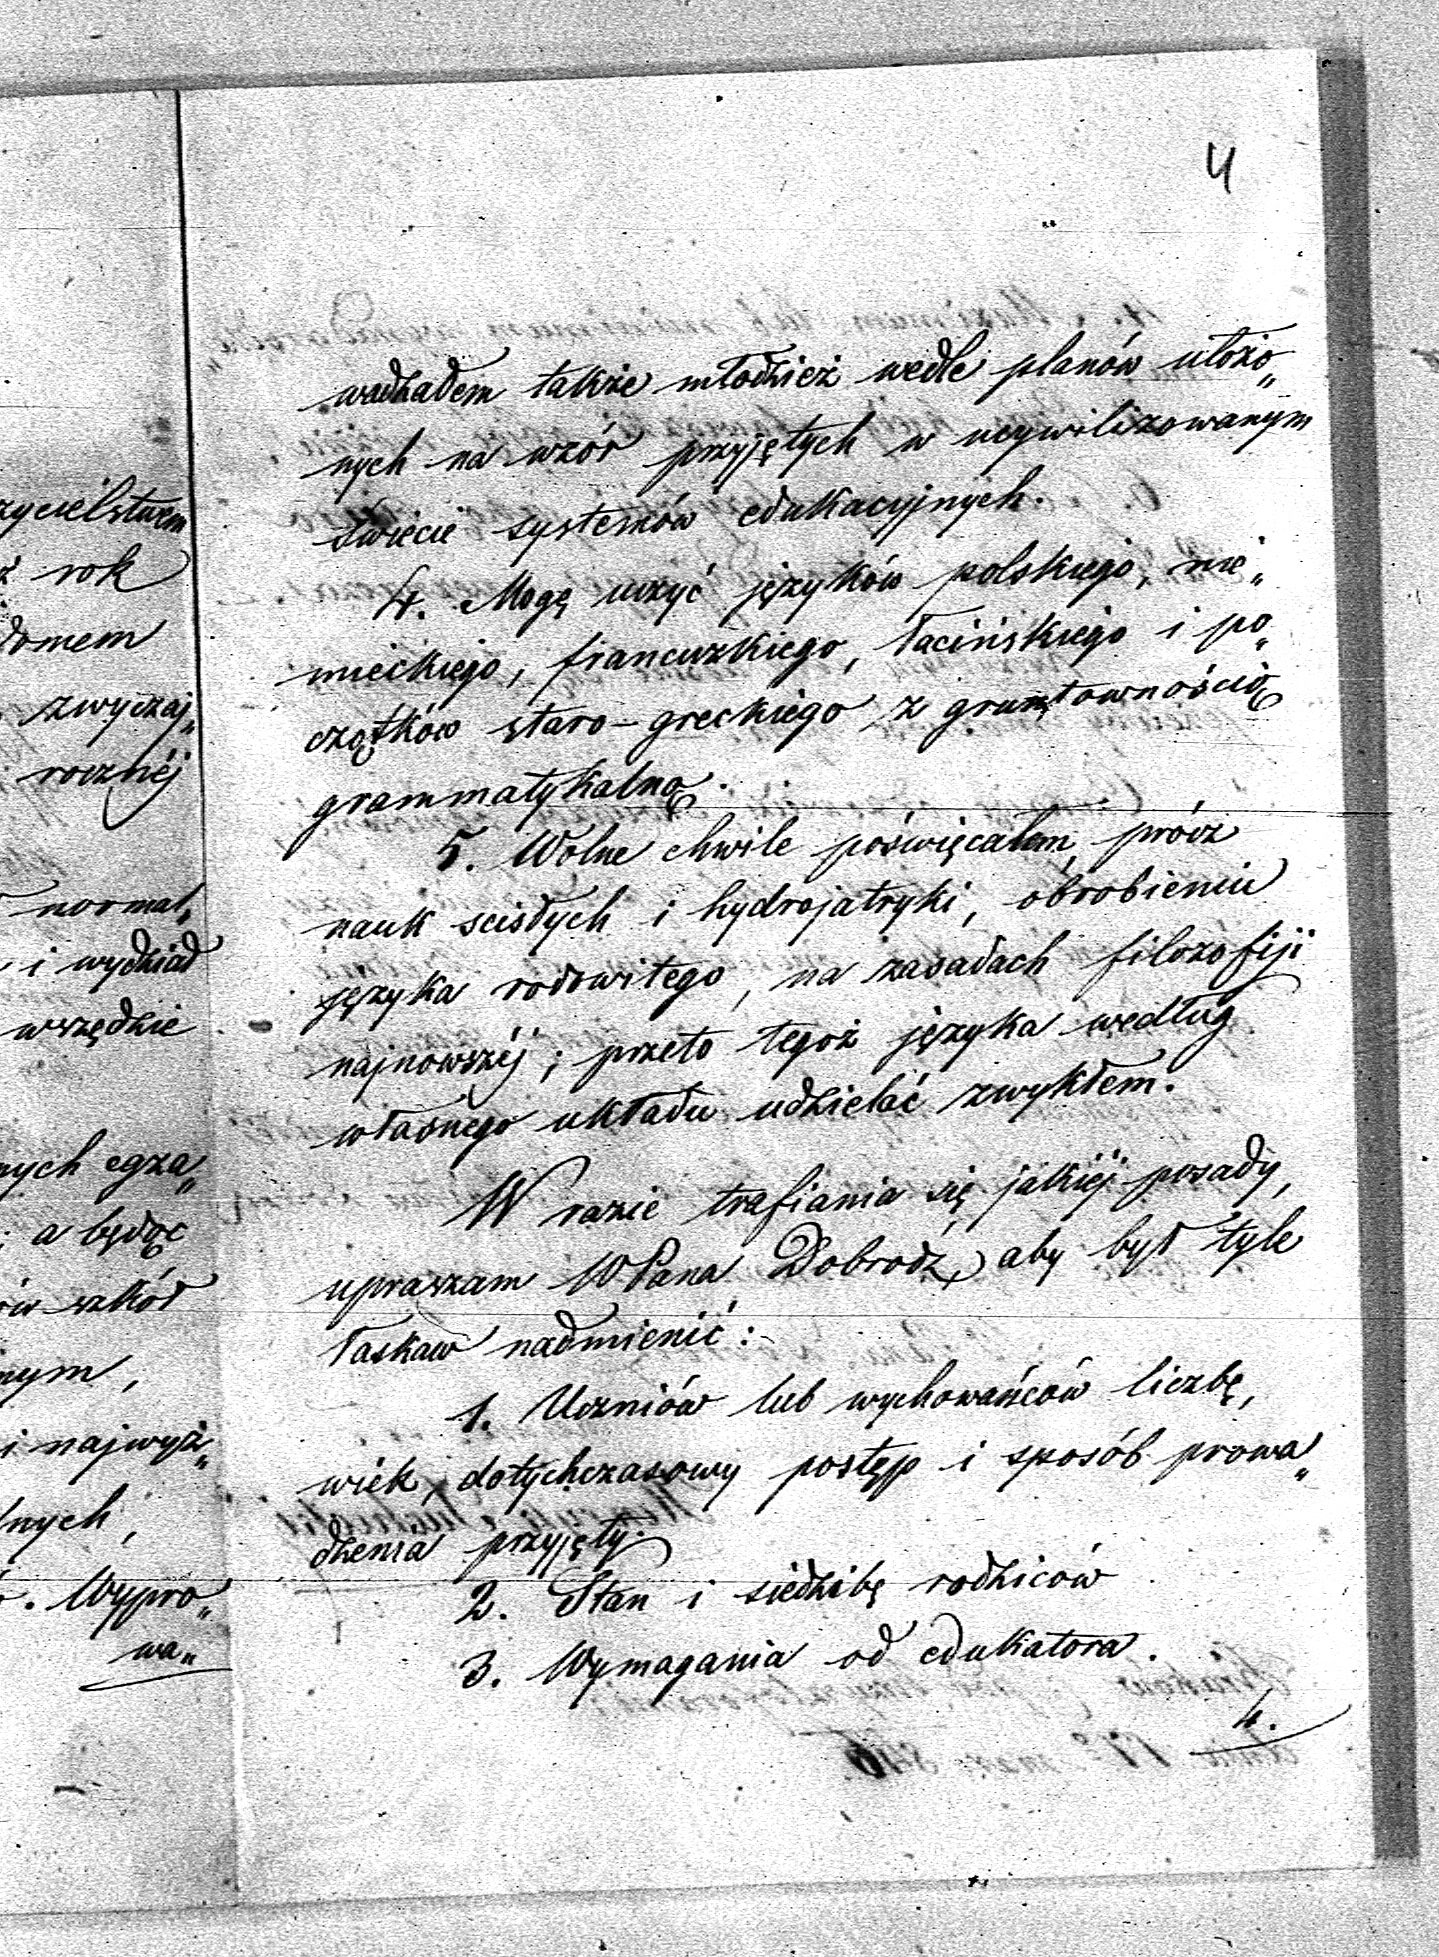 4
wadzałem także młodzież wedle planów ułożo„
nych na wzór przyjętych w ucywilizowanym
świecie systemów edukacyjnych.
4. Mogę uczyć języków polskiego, nie„
mieckiego, francuzkiego, łacińskiego i po„
czątków staro-greckiego z gruntownością
grammatykalną.
5. Wolne chwile poświęcałem, prócz
nauk scisłych i hydrojatryki, obrobieniu
języka rodowitego, na zasadach filozofiji
najnowszéj; przeto tegoż języka według
własnego układu udzielać zwykłem.
W razie trafiania się jakiéj posady,
upraszam WPana Dobrodz, aby był tyle
łaskaw nadmienić:
1. Uczniów lub wychowańców liczbę,
wiek, dotychczasowy postęp i sposób prowa„
dzenia przyjęty.
2. Stan i siedzibę rodziców
3. Wymagania od edukatora.
4.
zycielstwem
rok
domem
zwyczaj„
rocznéj
normal„
i wydział
wszędzie
nych egza„
a będąc
ów szkół
nym,
i najwyż„
lnych,
Wypro„
wa„